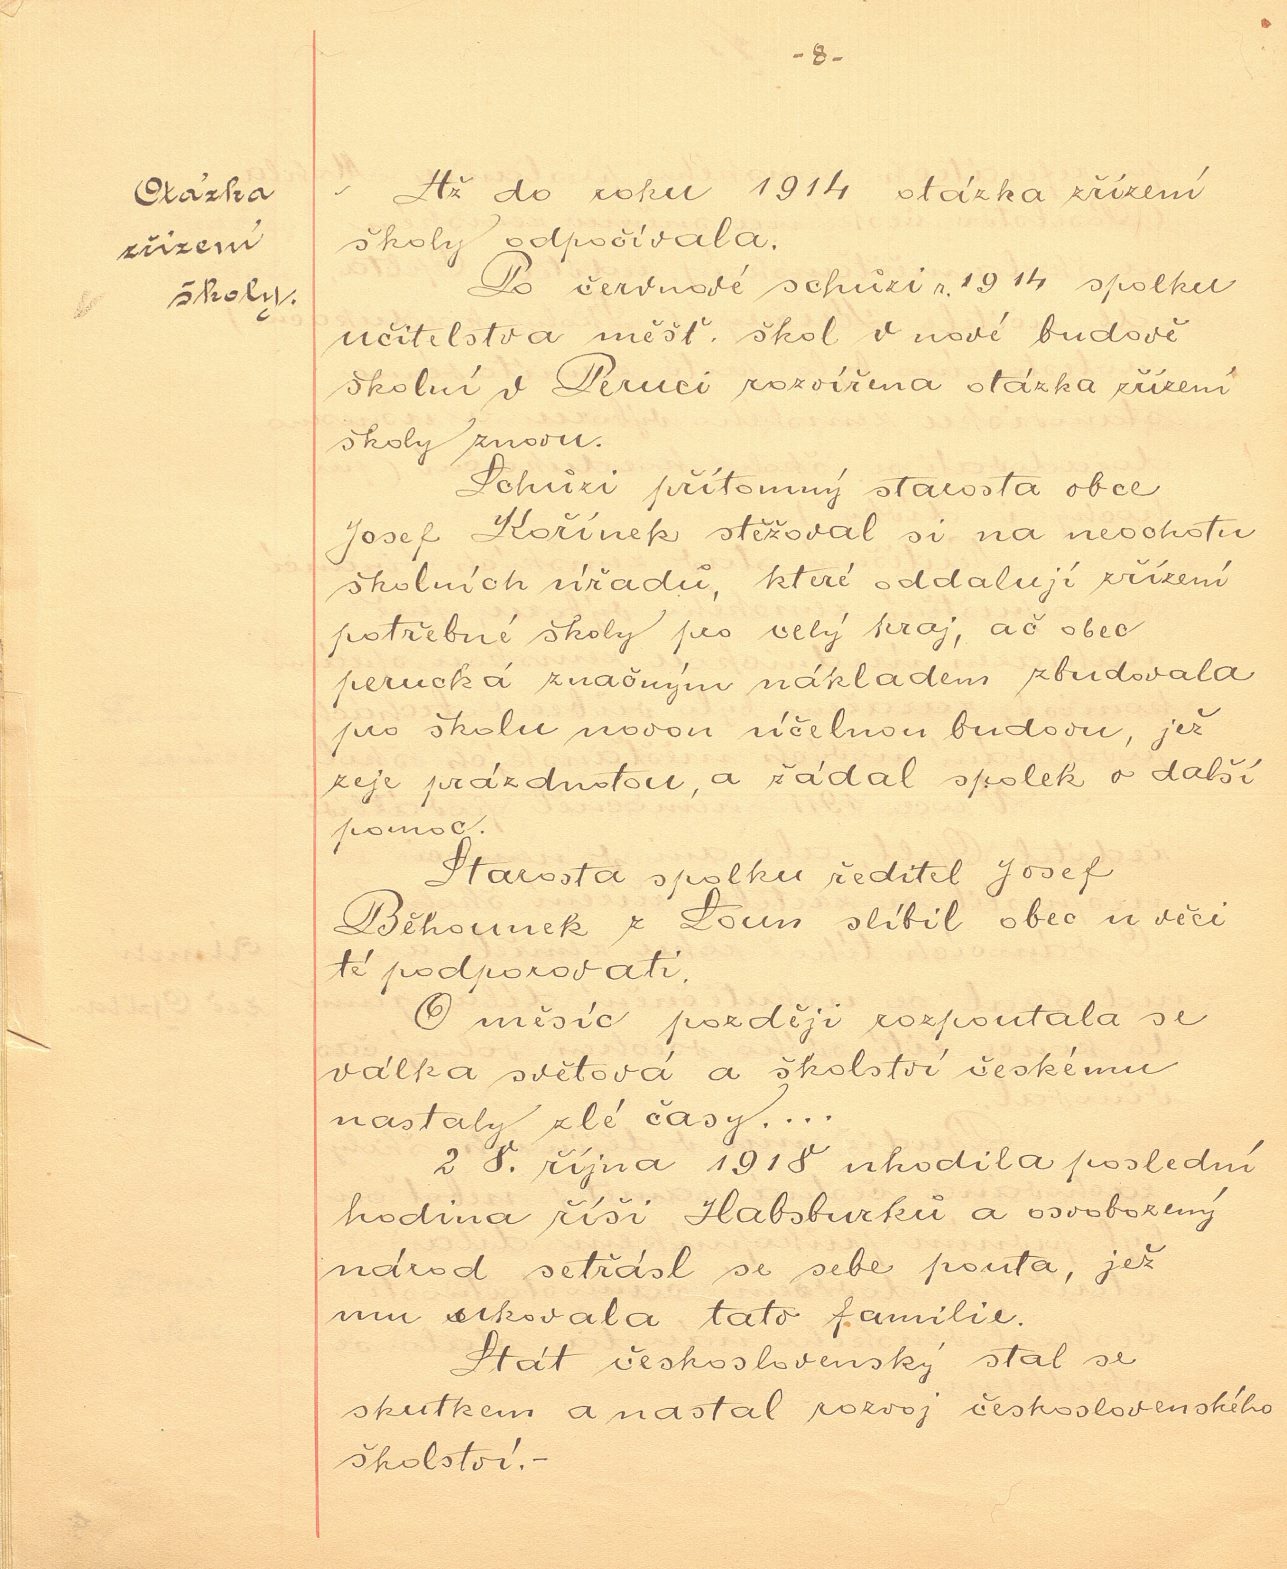 -8-
Otázka
zřízení
školy.
Až do roku 1914 otázka zřízení
školy odpočívala.
Po červnové schůzi r. 1914 spolku
učitelstva měšť. škol v nové budově
školní v Peruci rozvířena otázka zřízení
školy znovu.
Schůzi přítomný starosta obce
Josef Kořínek stěžoval si na neochotu
školních úřadů, které oddalují zřízení
potřebné školy pro celý kraj, ač obec
perucká značným nákladem zbudovala
pro školu novou účelnou budovu, jež
zeje prázdnotou, a žádal spolek o další
pomoc.
Starosta spolku ředitel Josef
Běhounek z Loun slíbil obec u věci
té podporovati.
O měsíc později rozpoutala se
válka světová a školství českému
nastaly zlé časy. ...
28. října 1918 uhodila poslední
hodina říši Habsburků a osvobozený
národ setřásl se sebe pouta, jež
mu ukovala tato familie.
Stát československý stal se
skutkem a nastal rozvoj československého
školství.-